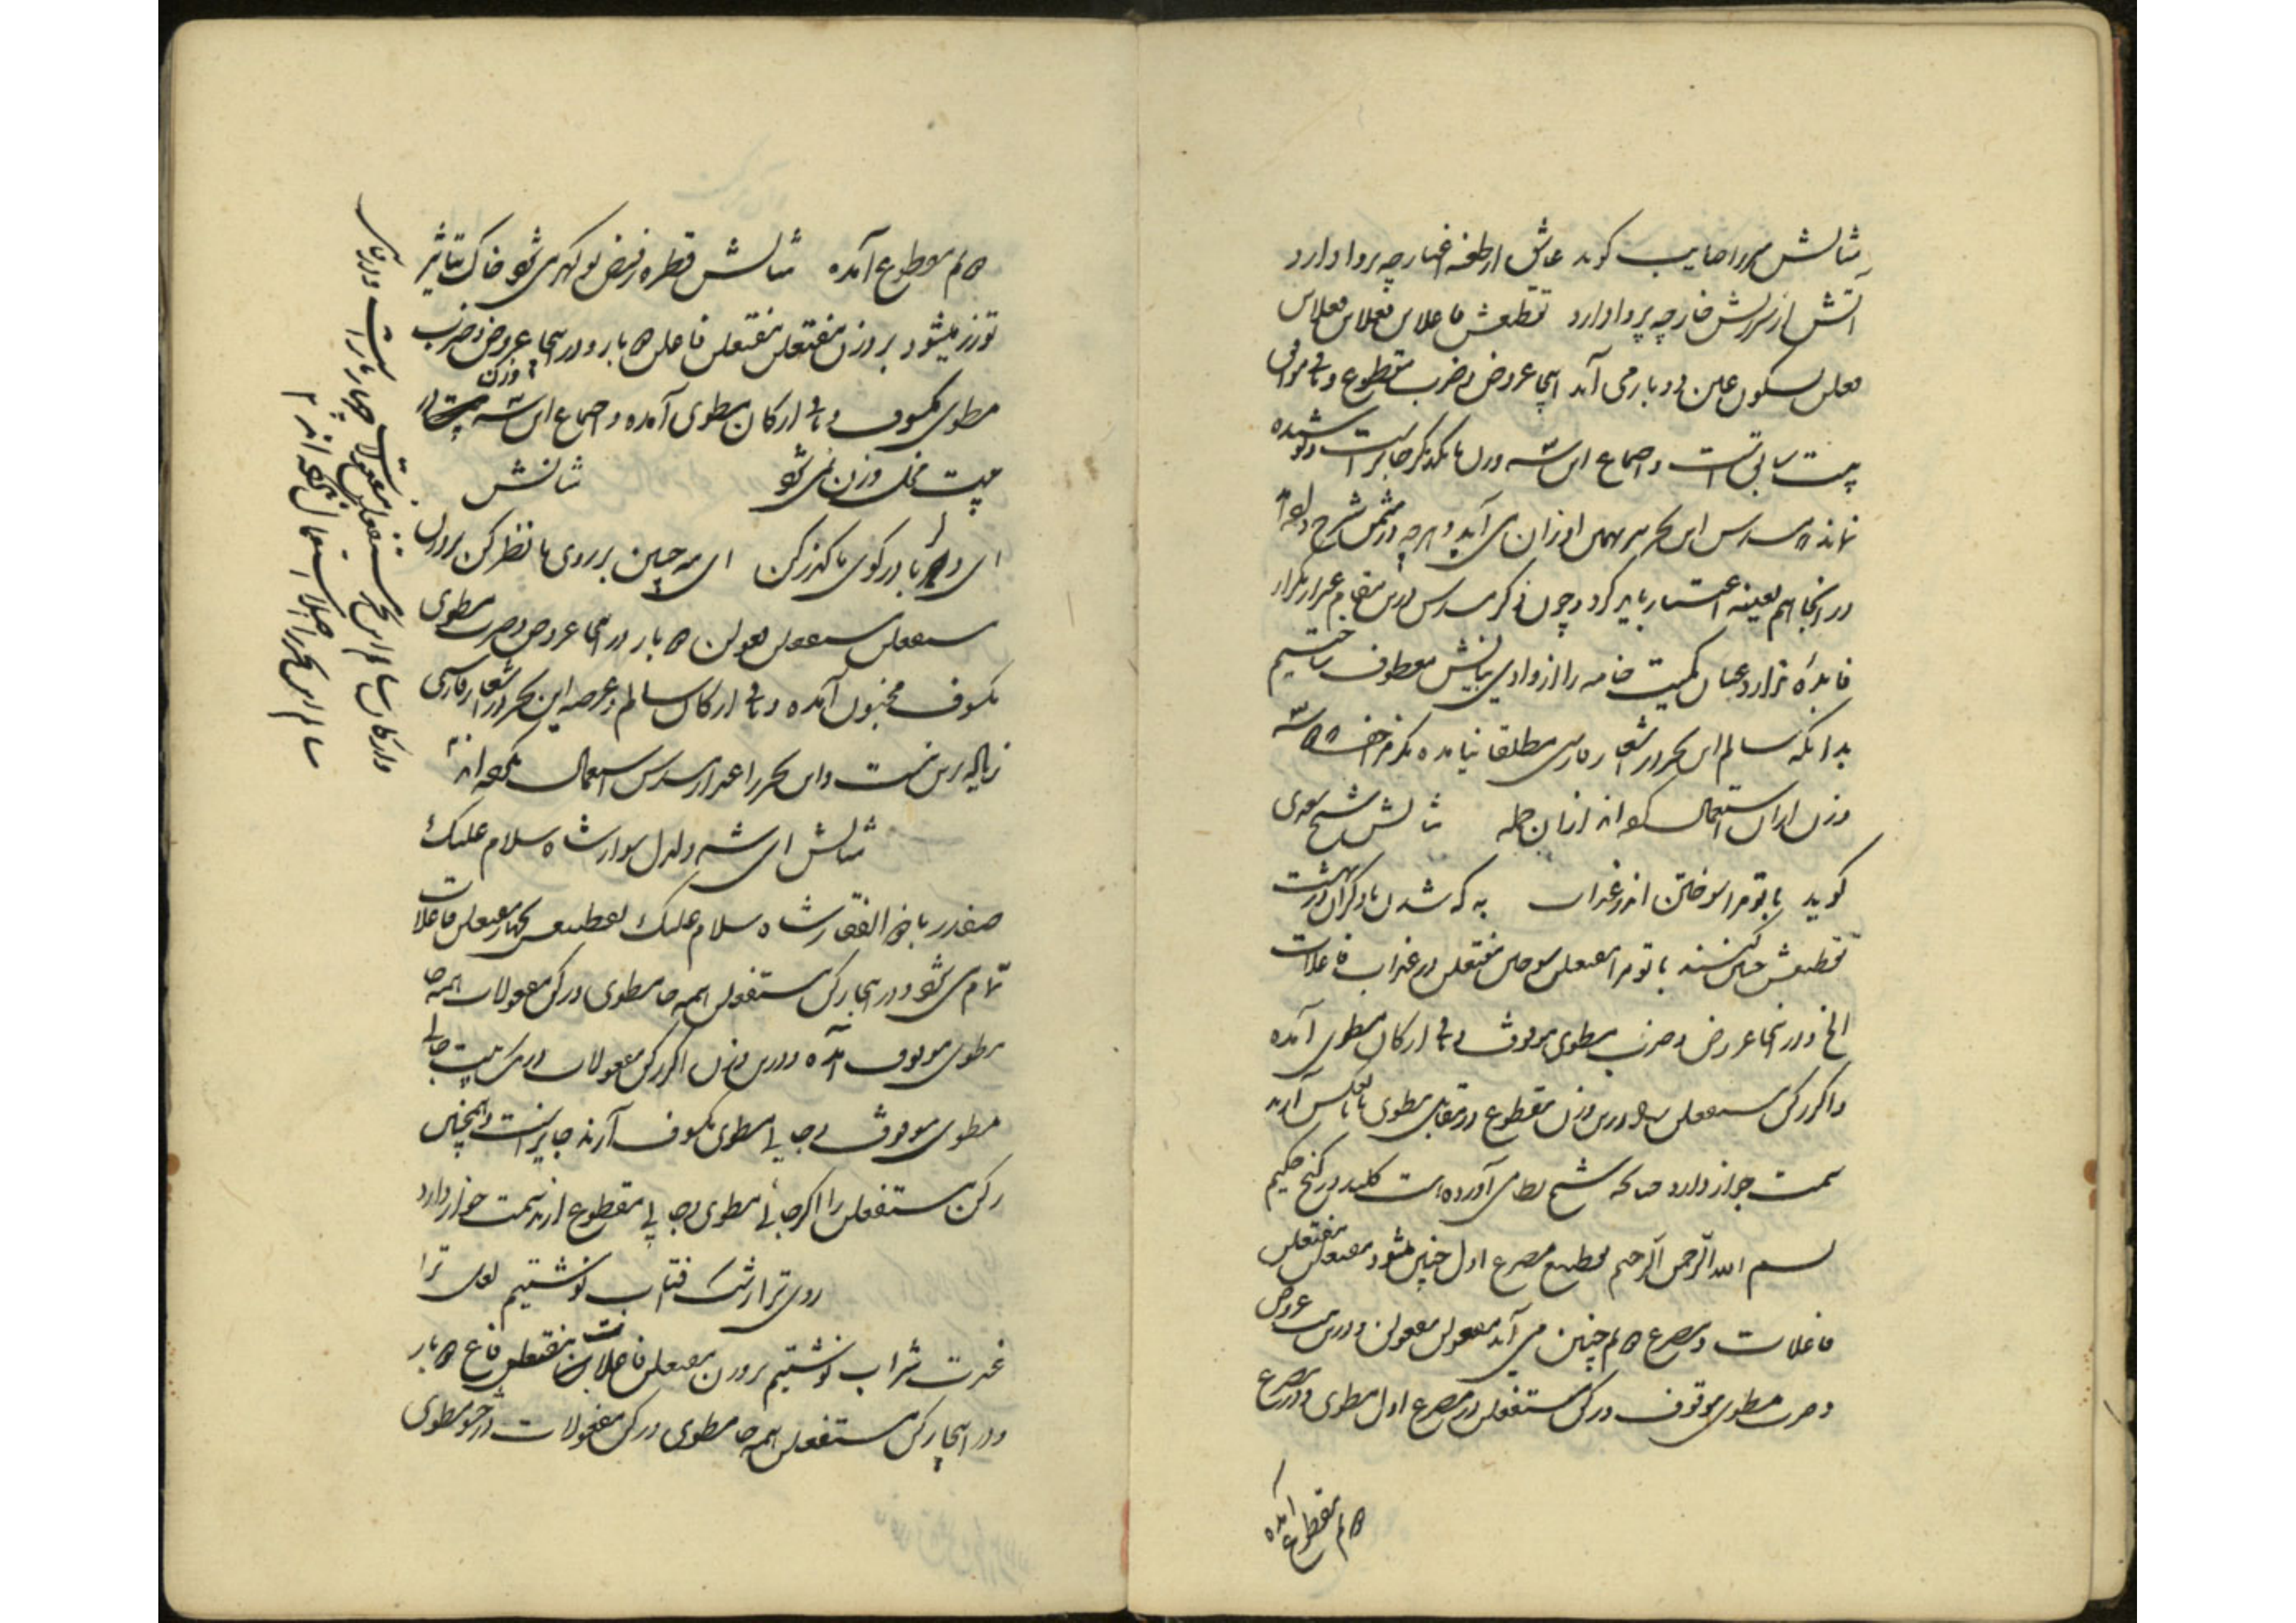 مثالش میرزا صایب کوید عاشق از طعنه اغیار چه پروا دارد
آتش از سرزنش خار چه پروا دارد تقطیعش فاعلاتن فعلاتن فعلاتن
فعلن بسکون عین دو بار می آید اینجا عروض و ضرب مقطوع و باقی موافق
بیت سابق است و اجتماع این سه وزن با یکدیگر جایز است و پوشیده
نماند که مسدس این بحر هم بر همین اوزان می آید و هرچه در مثمن شرح داده
در اینجا هم بعینه اعتبار باید کرد و چون ذکر مسدس درین مقام غیر از تکرار
فایدهٔ ندارد عنان کمیت خامه را از وادی بیانش معطوف ساختیم
بدانکه سالم این بحر در اشعار فارسی مطلقا نیامده مکر مزاحف
وزن ازان استعمال کرده اند ازان جمله مثالش شیخ سعدی
کوید با تو مرا سوختن اندر عذاب به که شدن با دکران در بهشت
تقطیعش چنین کنند با تو مرا مفتعلن سوختن مفتعلن در عذاب فاعلات
الخ و در اینجا عروض و ضرب مطوی موقوف و باقی ارکان مطوی آمده
و اکر رکن مستفعلن را درین وزن مقطوع در مقابل مطوی یا بالعکس آرند
سمت جواز دارد چنانکه شیخ نظامی آورده است کلید در کنج حکیم
بسم الله الرحمن الرحیم تقطیع مصرع اول چنین میشود مفتعلن مفتعلن
فاعلات و مصرع دوم چنین می آید مفعولن مفعولن و درین بیت عروض
و ضرب مطوی موقوف و رکن مستفعلن در مصرع اول مطوی و در مصرع
دوم مقطوع آمده
دوم مقطوع آمده مثالش قطره ز فیض تو کهر می شود خاک بتاثیر
تو زر میشود بر وزن مفتعلن مفتعلن فاعلن دو بار و در اینجا عروض و ضرب
مطوی مکسوف و باقی ارکان مطوی آمده و اجتماع این سه وزن در
بیت مخل وزن نمی شود مثالش
ای دلربا در کوی ما کذر کن ای مه جبین بر روی ما نظر کن بر وزن
مستفعلن مستفعلن فعولن دو بار در اینجا عروض و ضرب مطوی
مکسوف مخبون آمده و باقی ارکان سالم و عرصه این بحر در اشعار فارسی
زیاده برین نیست و این بحر را غیر از مسدس استعمال نکرده اند
مثالش ای شه دلدل سوار شاه سلام علیک
صفدر با ذوالفقار شاه سلام علیک تقطیعش بچهار مفتعلن فاعلات
تمام می شود و در اینجا رکن مستفعلن همه جا مطوی و رکن مفعولات همه جا
مطوی موقوف آمده و درین وزن اکر رکن مفعولات در یک بیت جایی
مطوی موقوف و جایی مطوی مکسوف آرند جایز است و همچنین
رکن مستفعلن را اکر جایی مطوی و جایی مقطوع آرند سمت جواز دارد
روی ترا رشک آفتاب نوشتیم لعل ترا
غیرت شراب نوشتیم بر وزن مفتعلن فاعلات مفتعلن فاع دو بار
و در اینجا رکن مستفعلن همه جا مطوی و رکن مفعولات در حشو مطوی
ارکان سالم این بحر مستفعلن مفعولات چهار بار است
سالم این بحر را اصلا استعمال نکرده اند